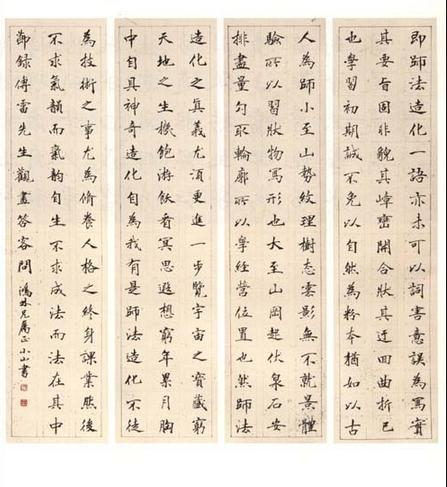 即師法造化一語亦未可以詞害意誤為寫實
其要旨固非貌其嶂巒開合狀其迂回曲折已
也學習初期誠不免以自然為粉本猶如以古
人為師小至山勢紋理樹态雲影無不就景體
驗所以習狀物寫形也大至山岡起伏泉石安
排盡量勾取輪廓所以學經營位置也然師法
造化之真義尤須更進一步覽宇宙之寶藏窮
天地之生機飽游飫看冥思遐想窮年累月胸
中自具神奇造化自為我有是師法造化不徒
為技術之事尤為脩養人格之終身課業然後
不求氣韻而氣韻自生不求成法而法在其中
節錄傅雷先生觀畫答客問 鴻林兄屬正 小山書